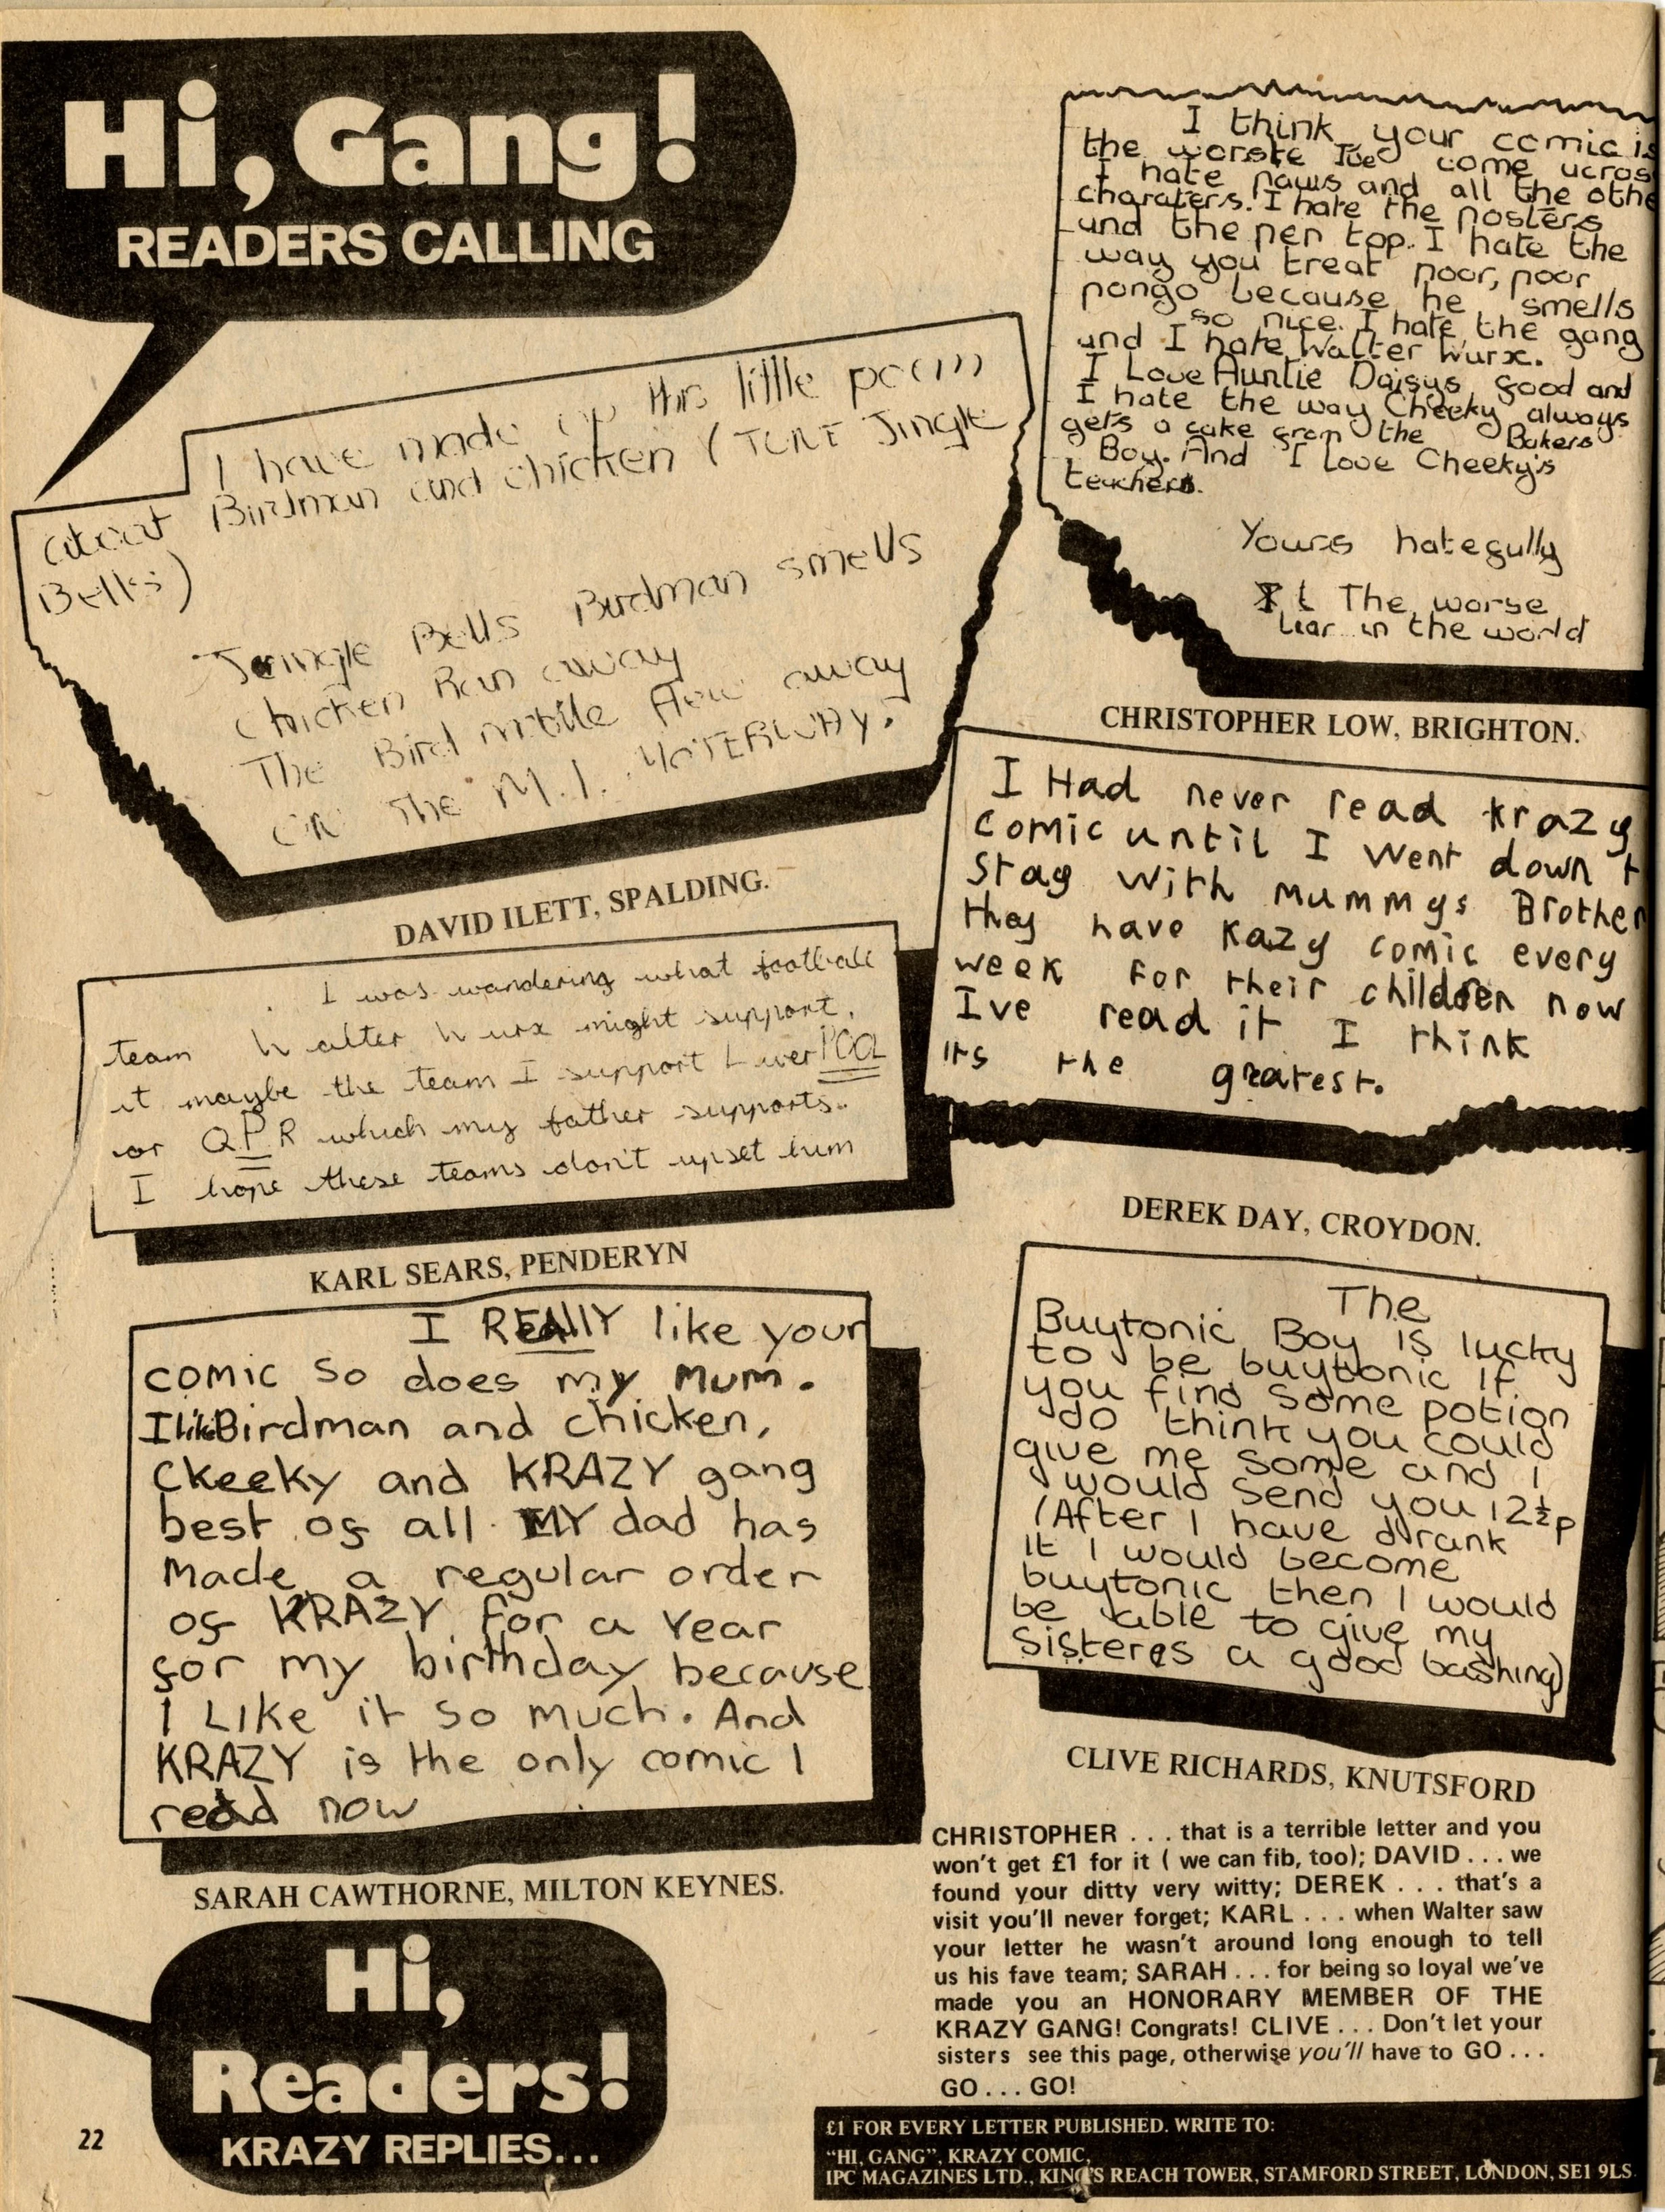 Hi, Gang!
READERS CALLING
I have made up this little poem
about Birdman and chicken (TUNE Jingle
Bells)
Jingle Bells Birdman smells
Chicken Ran away
The Bird mobile flew away
ON The M.1. MOTERWAY.
DAVID ILETT, SPALDING.
I think your comic is
the worste Ive come ucros
I hate paws and all the othe
charaters. I hate the posters
und the pen top. I hate the
way you treat poor, poor
pongo because he smells
so nice. I hate the gang
und I hate Walter Wurx.
I Love Auntie Daisys food and
I hate the way Cheeky always
gets a cake from the Bakers
Boy. And I Love Cheeky's
teachers.
Yours hatefully
The worse
liar in the world
CHRISTOPHER LOW, BRIGHTON.
I was wandering what football
team Walter Wurx might support,
it maybe the team I support LiverPOOL
or QPR which my father supports.
I hope these teams don't upset him
KARL SEARS, PENDERYN
I Had never read krazy
comic until I Went down t
Stay With mummys Brother
they have Kazy comic every
week for their children now
Ive read it I think
its the greatest.
DEREK DAY, CROYDON.
I REALLY like your
comic so does my Mum.
I like Birdman and chicken,
Ckeeky and KRAZY gang
best of all. MY dad has
Made a regular order
of KRAZY for a Year
for my birthday because
I LIke it so much. And
KRAZY is the only comic I
read now
SARAH CAWTHORNE, MILTON KEYNES.
The
Buytonic Boy is lucky
to be buytonic If
you find some potion
do think you could
give me some and I
would send you 12½p
(After I have drank
it I would become
buytonic then I would
be able to give my
sisters a good bashing)
CLIVE RICHARDS, KNUTSFORD
Hi,
Readers!
KRAZY REPLIES...
CHRISTOPHER . . . that is a terrible letter and you
won't get £1 for it ( we can fib, too); DAVID . . . we
found your ditty very witty; DEREK . . . that's a
visit you'll never forget; KARL . . . when Walter saw
your letter he wasn't around long enough to tell
us his fave team; SARAH . . . for being so loyal we've
made you an HONORARY MEMBER OF THE
KRAZY GANG! Congrats! CLIVE . . . Don't let your
sisters see this page, otherwise you'll have to GO . . .
GO . . . GO!
22
£1 FOR EVERY LETTER PUBLISHED. WRITE TO:
"HI, GANG", KRAZY COMIC,
IPC MAGAZINES LTD., KING'S REACH TOWER, STAMFORD STREET, LONDON, SE1 9LS